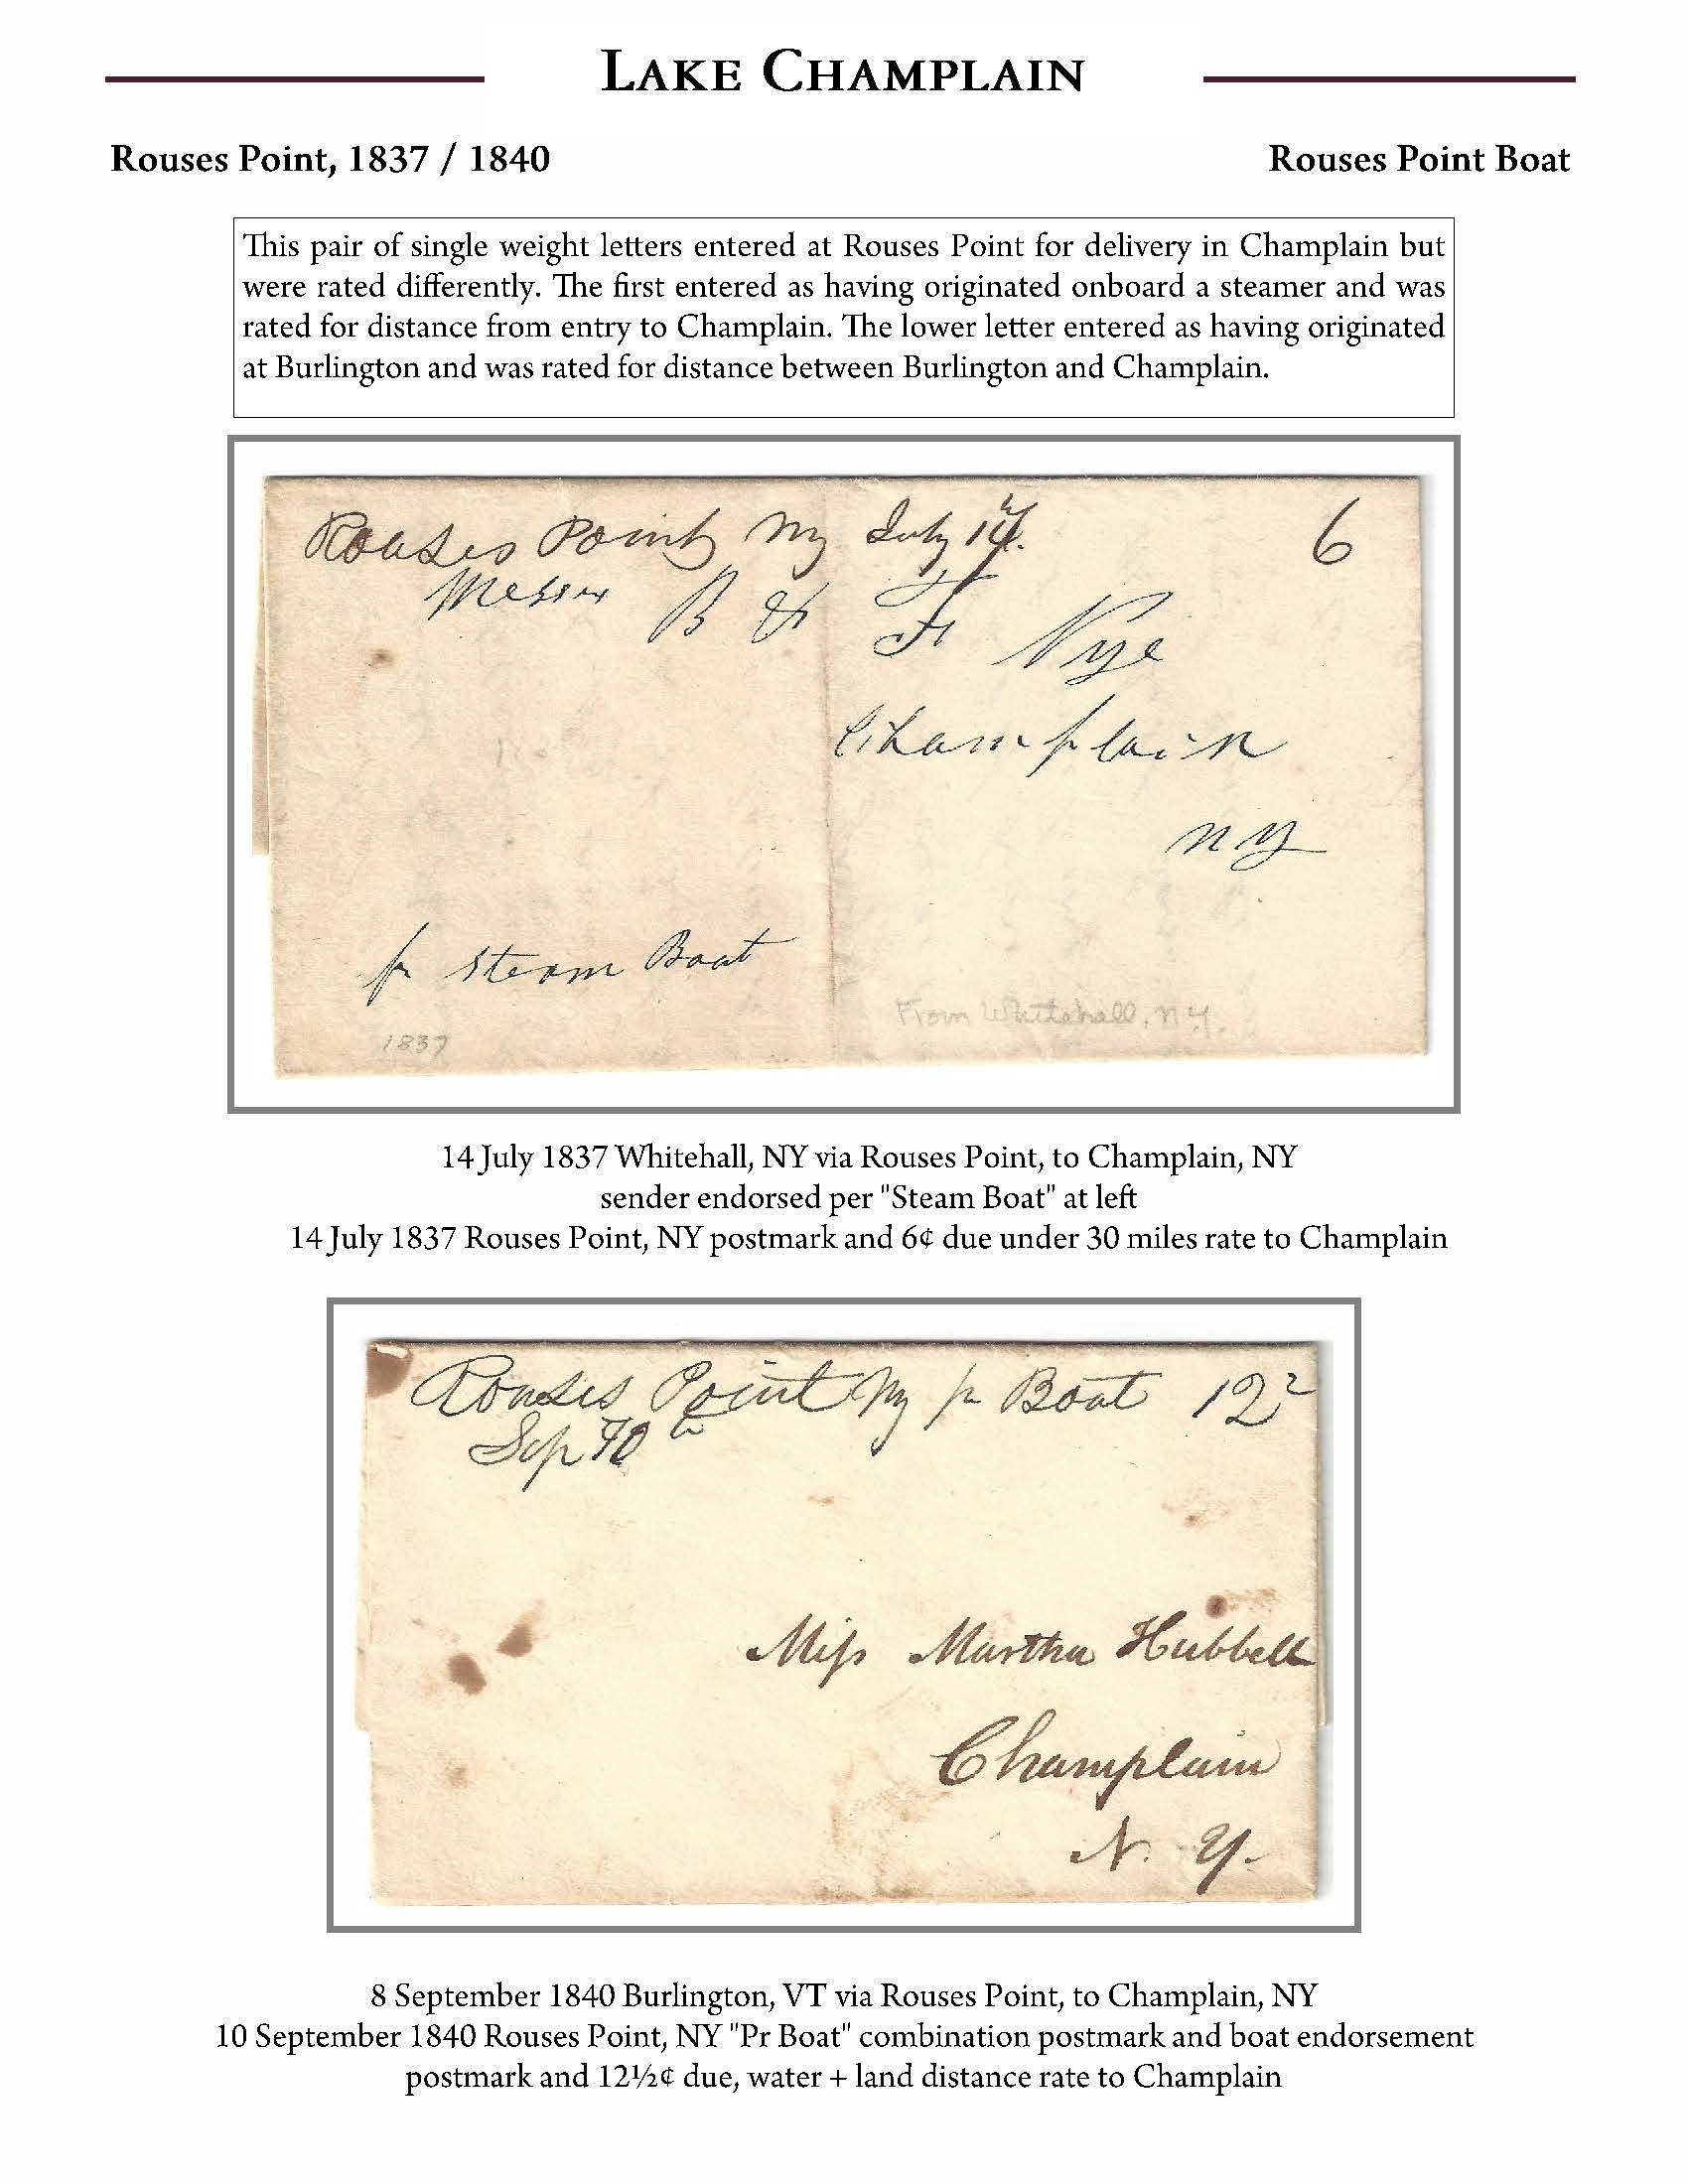 LAKE CHAMPLAIN
Rouses Point, 1837 / 1840
Rouses Point Boat
This pair of single weight letters entered at Rouses Point for delivery in Champlain but
were rated differently. The first entered as having originated onboard a steamer and was
rated for distance from entry to Champlain. The lower letter entered as having originated
at Burlington and was rated for distance between Burlington and Champlain.
Rouses Point Ny July 14 6
Messrs B & F Nye
Champlain
NY
pr Steam Boat
From Whitehall, N.Y.
1837
14 July 1837 Whitehall, NY via Rouses Point, to Champlain, NY
sender endorsed per "Steam Boat" at left
14 July 1837 Rouses Point, NY postmark and 6¢ due under 30 miles rate to Champlain
Rouses Point Ny pr Boat 12 2
Sep 10th
Miss Martha Hubbell
Champlain
N. Y.
8 September 1840 Burlington, VT via Rouses Point, to Champlain, NY
10 September 1840 Rouses Point, NY "Pr Boat" combination postmark and boat endorsement
postmark and 12½¢ due, water + land distance rate to Champlain